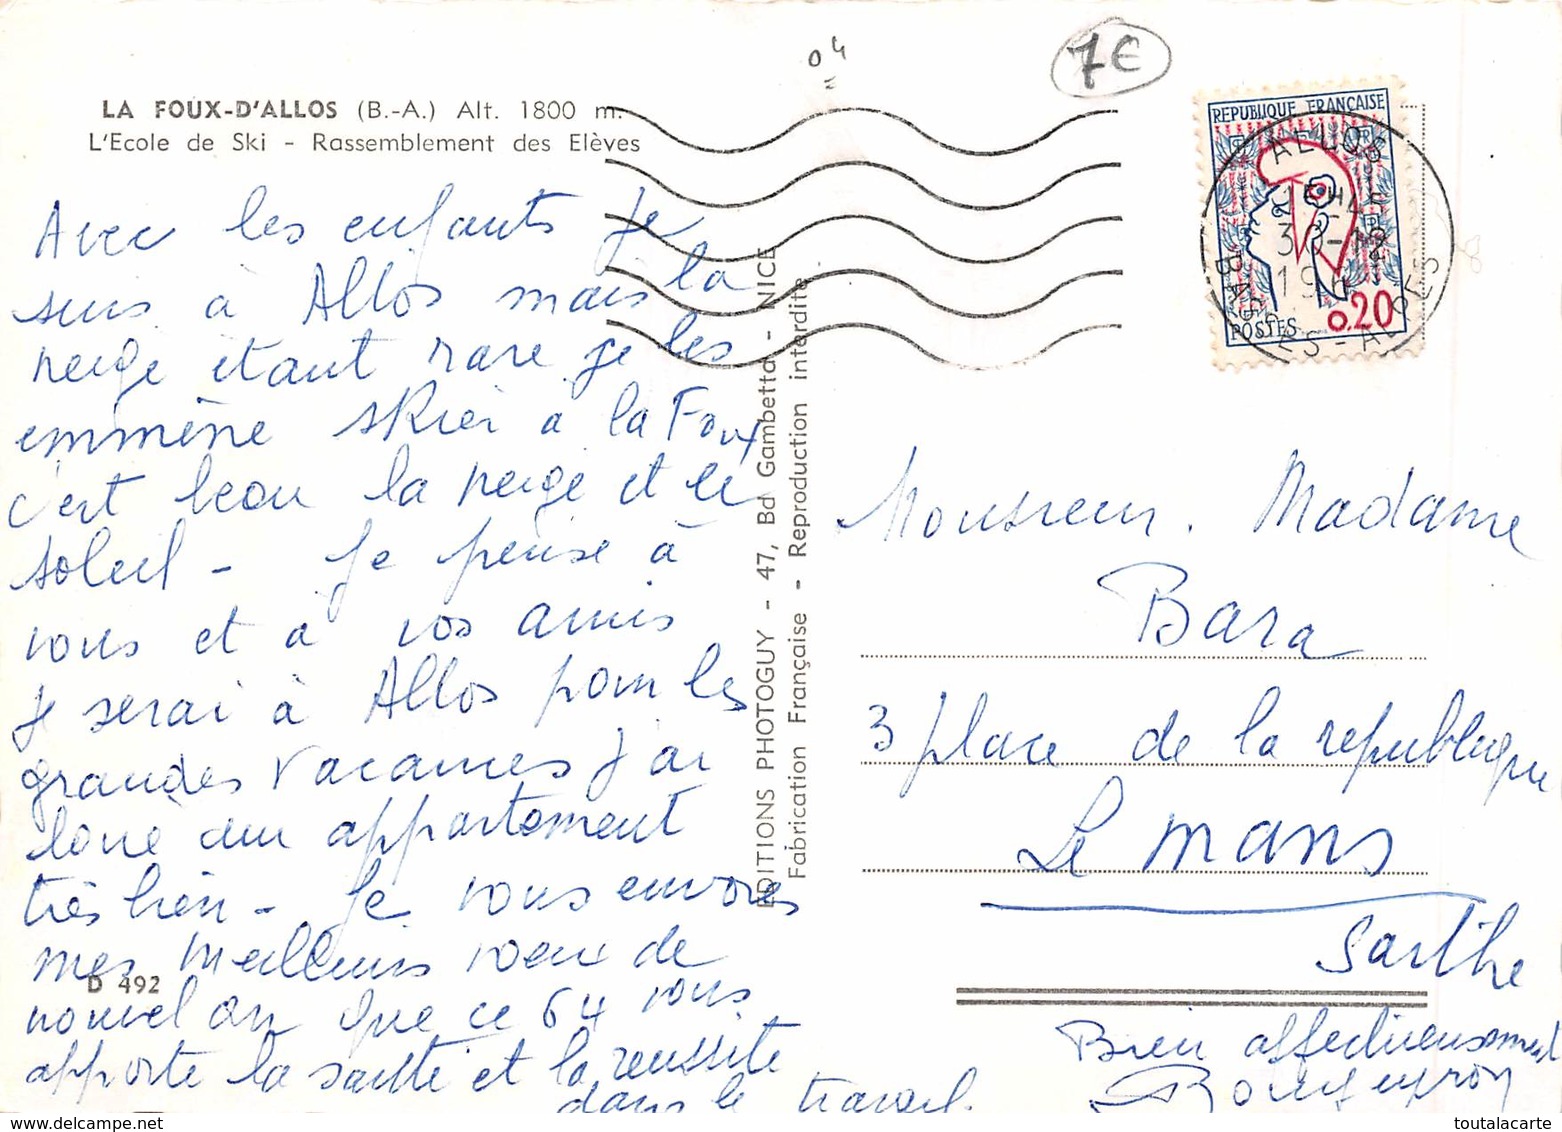 04
7€
LA FOUX-D'ALLOS (B.-A.) Alt. 1800 m.
L'Ecole de Ski - Rassemblement des Elèves
REPUBLIQUE FRANÇAISE
POSTES
0,20
ALLOS
BASSES-ALPES
Avec les enfants je
suis à Allos mais la
neige étant rare je les
emmène skier à la Foux
c'est beau la neige et le
soleil - je pense à
vous et à vos amis
je serai à Allos pour les
grandes vacances j'ai
loué un appartement
très bien - je vous envoies
mes meilleurs voeux de
nouvel an que ce 64 vous
apporte la santé et la reussite
dans le travail.
D 492
EDITIONS PHOTOGUY - 47, Bd Gambetta - NICE
Fabrication Française - Reproduction interdite
Monsieur. Madame
Bara
3 place de la republique
Le Mans
Sarthe
Bien affectueusement
toutalacarte